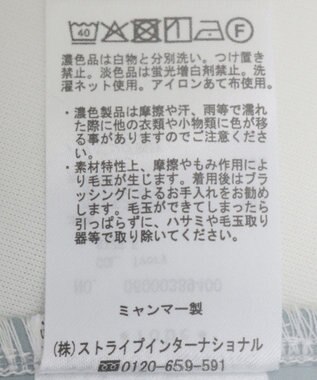 40 F
濃色品は白物と分別洗い。つけ置き
禁止。淡色品は蛍光増白剤禁止。洗
濯ネット使用。アイロンあて布使用。
・濃色製品は摩擦や汗、雨等で濡れ
た際に他の衣類や小物類に色が移
る事がありますのでご注意くださ
い。
・素材特性上、摩擦やもみ作用によ
り毛玉が生じます。着用後はブラ
ッシングによるお手入れをお勧め
します。毛玉ができてしまったら
引っぱらずに、ハサミや毛玉取り
器等で取り除いてください。
ミャンマー製
(株)ストライプインターナショナル
0120-659-591